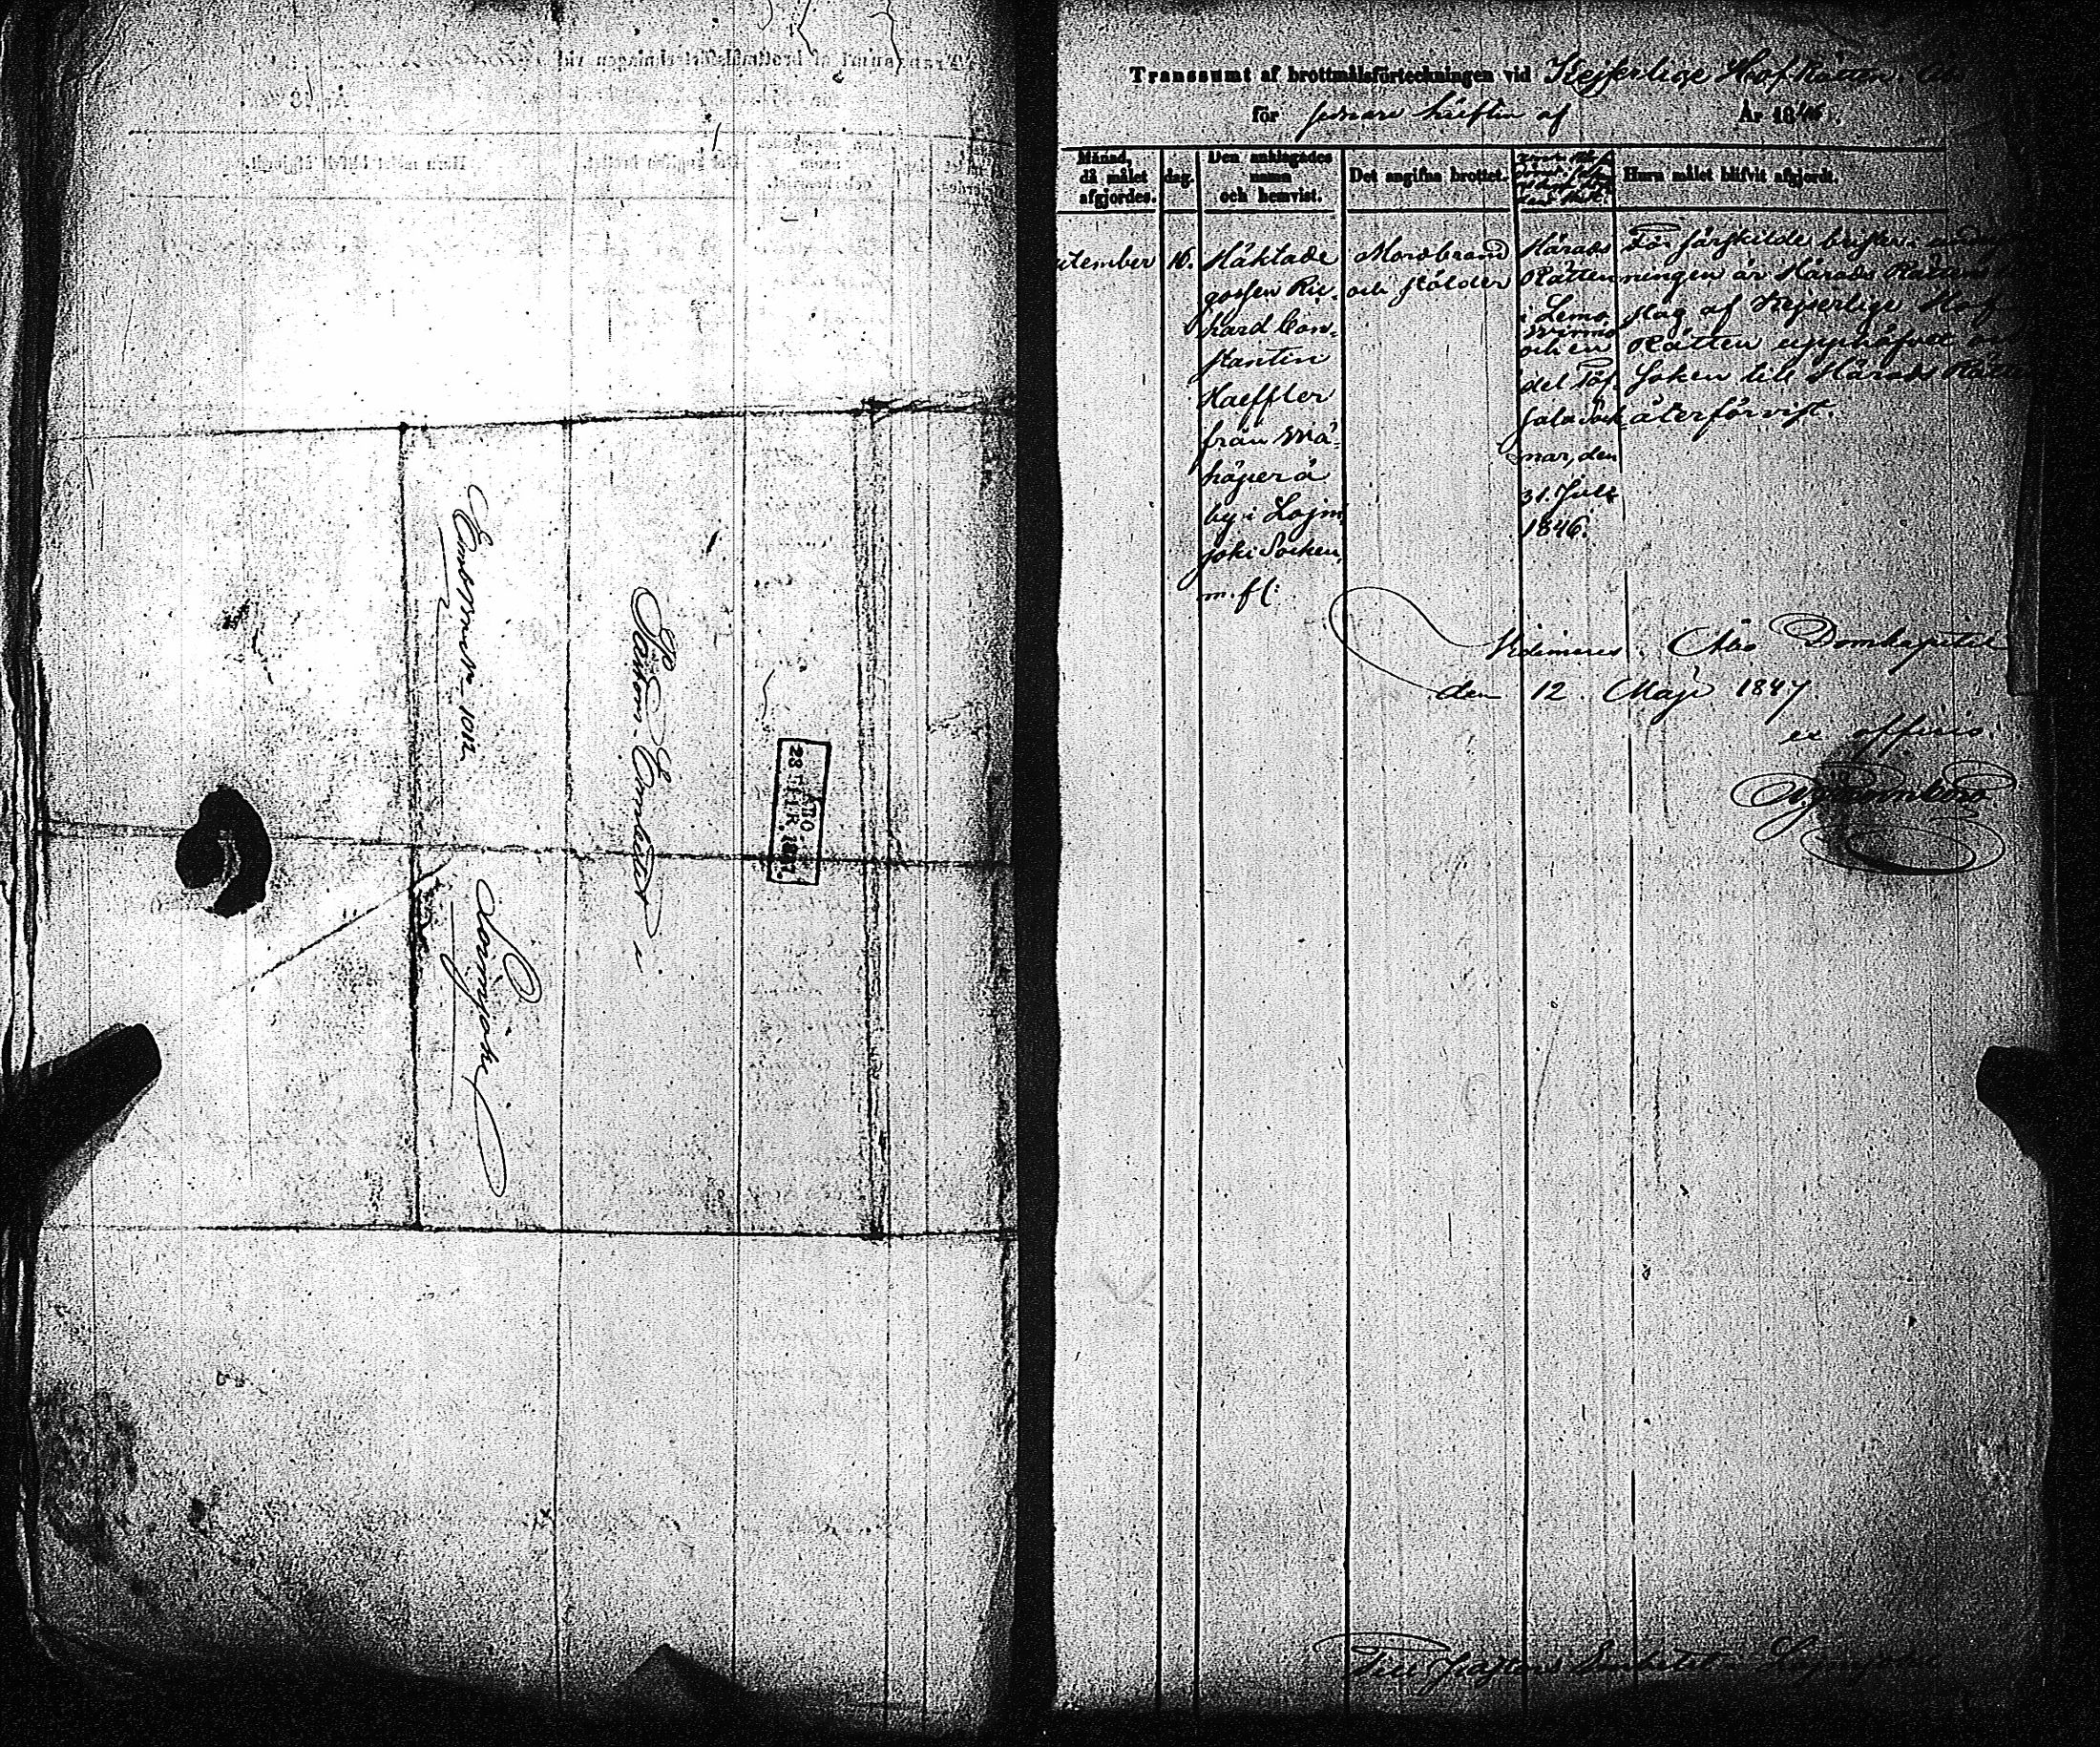 Pastors Embetet
i
Embetsresa
Loimijoki
ÅBO.
28
Transsumt af brottmålsförteckningen vid Kejserlige HofRätten
för sednare hälften af År 1846.
Månad,
då målet
afgjordes.
dag.
Den anklagades
namn
och hemvist.
Det angifna brottet.
Huru målet blifvit afgjordt.
tember
16.
Häktade
gossen Ric-
hard Con-
stantin
Haeffler
från Mä-
häperä
by i Lojm
joki Socken
m. fl:
Mordbrand
och stölder
Härads
Rätten
i Lemo
Wirmo
och en
del Töf-
sala Sock
nar, den
31. Juli
1846.
För särskilde brister i
ningen är Härads Rättens
slag af Kejserlige Hof
Rätten upphäfvet
saken till Härads Rätten
återförvist.
Videmeras. Åbo Domkapitel
den 12. Maji 1847
ex officio.
Till Pastors Embetet i